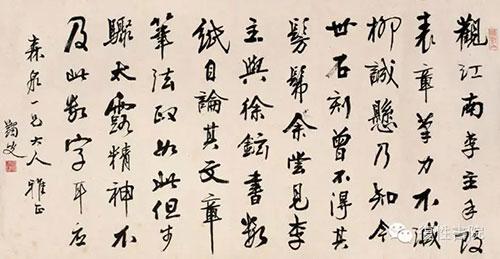 觀江南李主手改
表章筆力不減
柳誠懸乃知今
世石刻曾不得其
髣髴余嘗見李
主與徐鉉書數
紙自論其文章
筆法政如此但步
驟太露精神不
及此數字耳应
森泉一兄大人雅正
復性書院